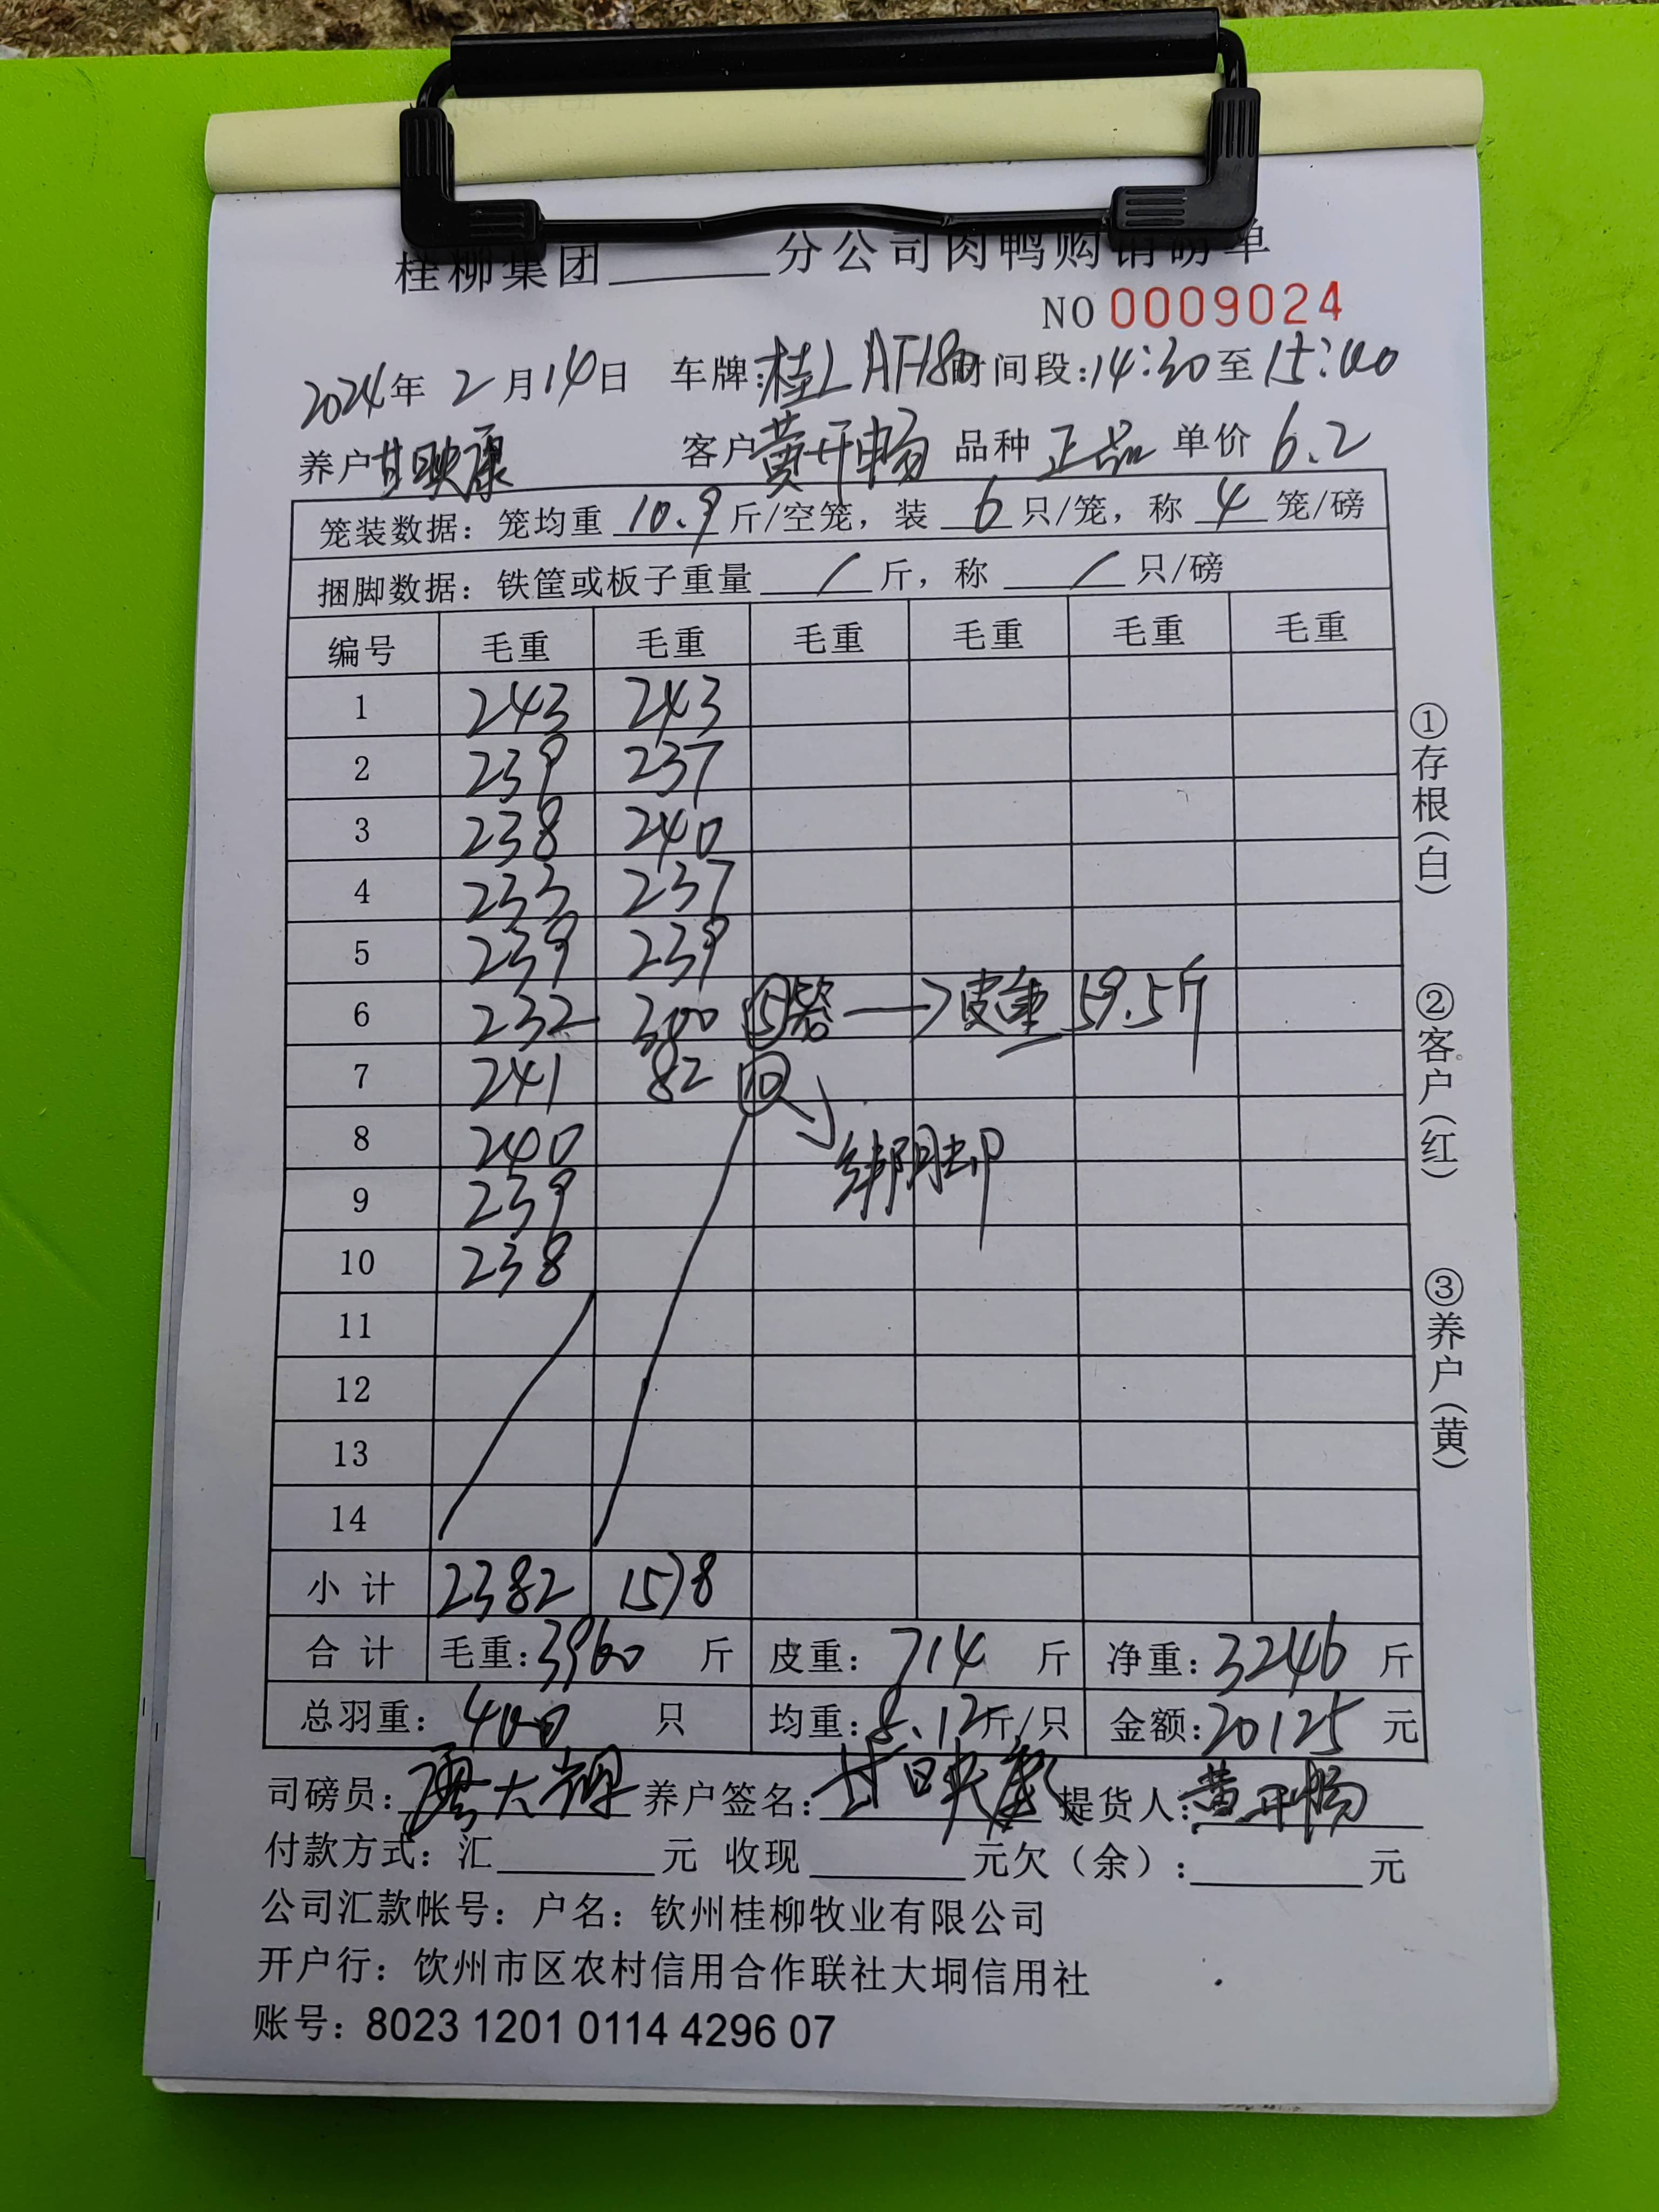 桂柳集团______分公司肉鸭购销磅单
NO 0009024
2024年 2月14日 车牌:桂LAF180 时间段:14:30至15:40
养户甘映康 客户黄开畅 品种 正品 单价 6.2
笼装数据：笼均重 10.9 斤/空笼，装 6 只/笼，称 4 笼/磅
捆脚数据：铁筐或板子重量 / 斤，称 / 只/磅
编号 毛重 毛重 毛重 毛重 毛重 毛重
1 243 243
2 239 237
3 238 240
4 233 237
5 239 239
6 232 300 ⑤笼 → 皮重 59.5斤
7 241 82 ⑩只
8 240 绑脚
9 239
10 238
11
12
13
14
小 计 2382 1578
合 计 毛重：3960 斤 皮重：714 斤 净重：3246 斤
总羽重：400 只 均重：8.12斤/只 金额：20125 元
司磅员： 养户签名：甘映康 提货人：黄开畅
付款方式：汇______元 收现______元欠（余）：______元
公司汇款帐号：户名：钦州桂柳牧业有限公司
开户行：饮州市区农村信用合作联社大垌信用社
账号：8023 1201 0114 4296 07
①存根（白） ②客户（红） ③养户（黄）